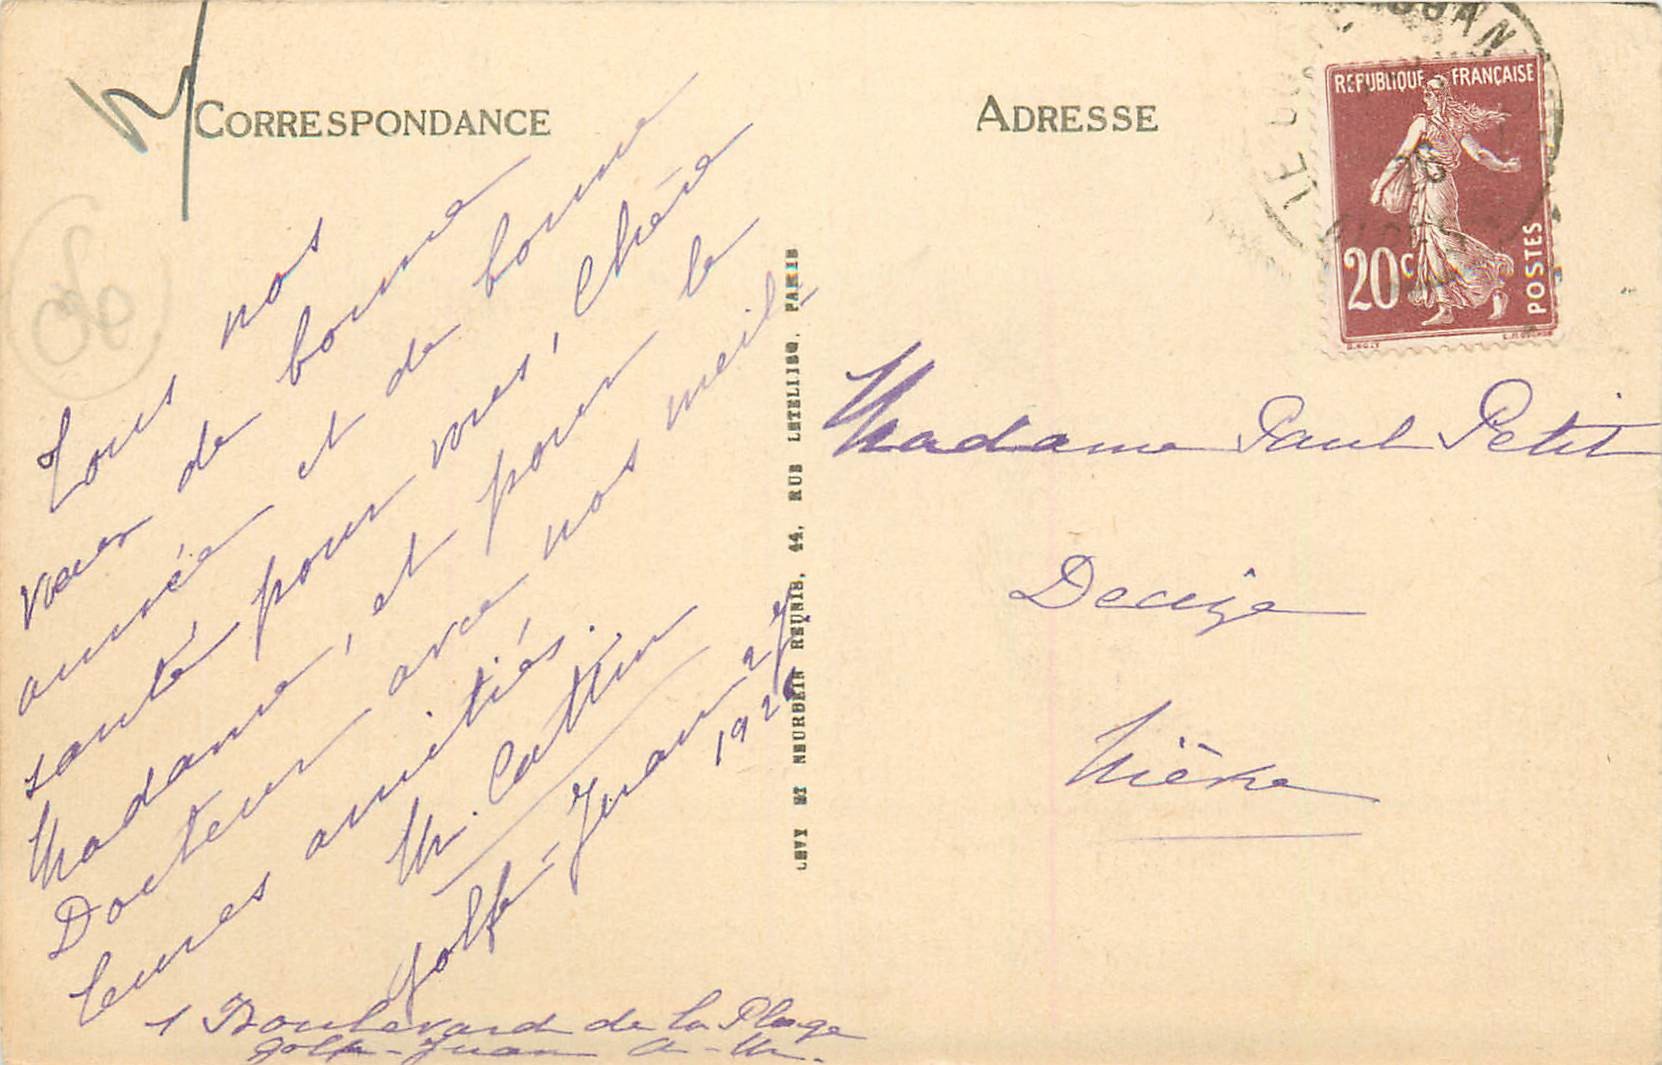 CORRESPONDANCE
Tous nos
vœux de bonne
année et de bonne
santé, pour vous, Chère
Madame, et pour le
Docteur avec nos meil-
leures amitiés.
M. Cattin
Golfe-Juan 27
192
1 Boulevard de la Plage
Golfe-Juan A-M.
LEVY ET NEURDEIN REUNIS, 44, RUE LETELLIER, PARIS
ADRESSE
REPUBLIQUE FRANÇAISE
20c
POSTES
LE GOLFE JUAN
26
Madame Paul Petit
Decize
Nièvre